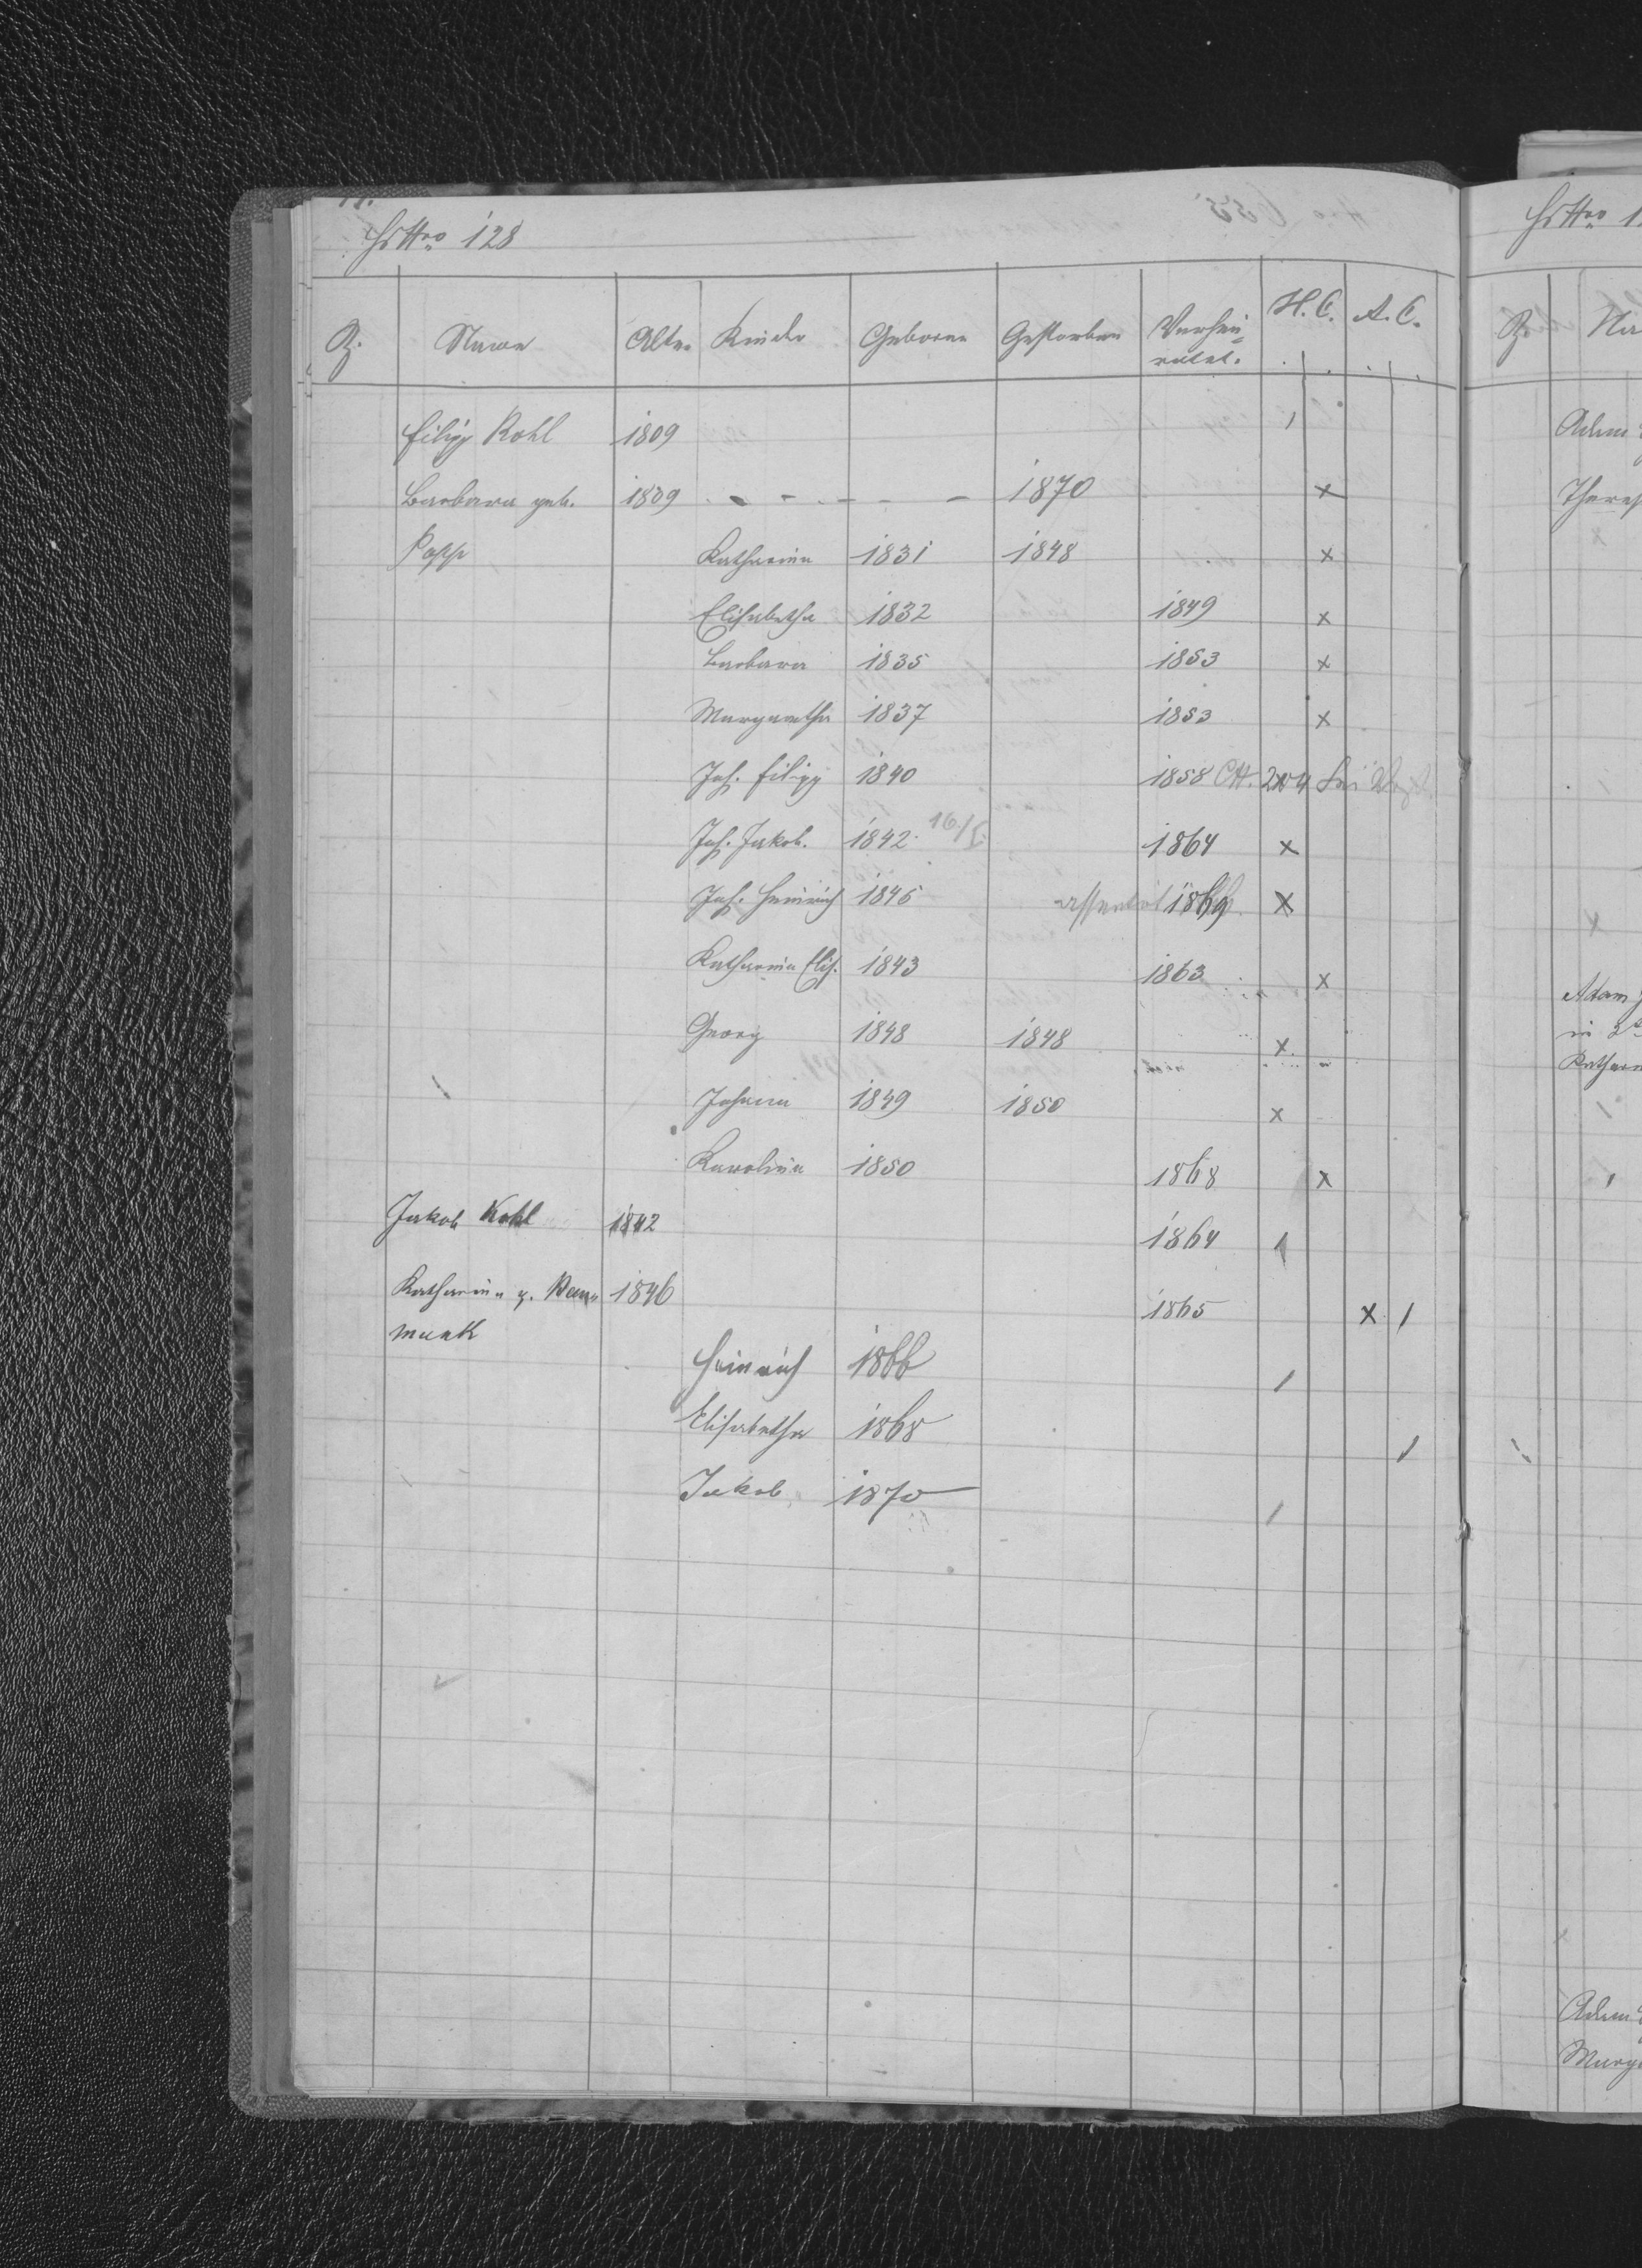 Hs Nro 128
Z. Name Alter Kinder Geboren Gestorben Verhei=
ratet. H. C. A. C.
Filipp Kohl 1809 1
Barbara geb. 1809 - - - - - 1870 x
Popp Katharina 1831 1848 x
Elisabetha 1832 1849 x
Barbara 1835 1853 x
Margaretha 1837 1853 x
Joh. Filipp 1840 1858
Joh. Jakob. 1842. 16/I. 1864 x
Joh. Heinrich 1845 assentirt x
Katharina Elis. 1843 1863 x
Georg 1848 1848 x
Johann 1849 1850 x
Karolina 1850 1868 x
Jakob Kohl 1842 1864 1
Katharina g. 1846 1865 x 1
Heinrich 1866 1
Elisabetha 1868 1
Jakob 1870 1
Hs Nro 1
Z. Na
Adam
Theres
Adam
in 2t
Kathar
Adam
Marg